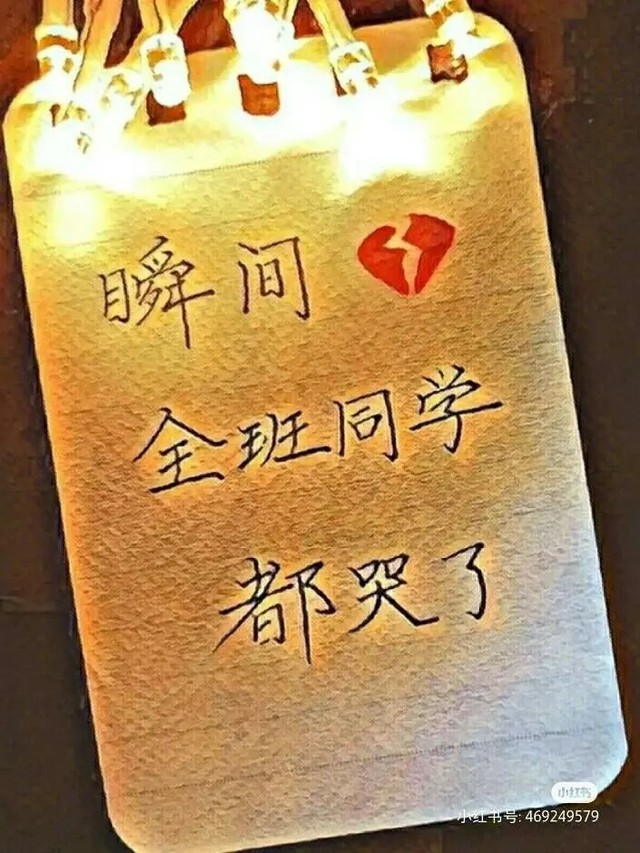 瞬间
全班同学
都哭了
小红书
小红书号: 469249579